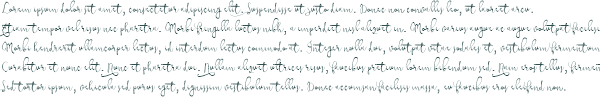 Lorem ipsum dolor sit amet, consectetur adipiscing elit. Suspendisse ut justo diam. Donec non convallis leo, ut laoreet arcu.
Etiam tempor vel risus nec pharetra. Morbi fringilla luctus nibh, a imperdiet nisl aliquet in. Morbi varius augue ac augue volutpat facilisis
Morbi hendrerit ullamcorper lectus, id interdum lectus commodo at. Integer nulla dui, volutpat vitae sodales et, vestibulum fermentum
Curabitur et nunc elit. Nunc et pharetra dui. Nullam aliquet ultrices risus, faucibus pretium lorem bibendum sed. Nam eros tellus,
Sed tortor ipsum, vehicula sed purus eget, dignissim vestibulum tellus. Donec accumsan facilisis massa, eu faucibus eros eleifend non.